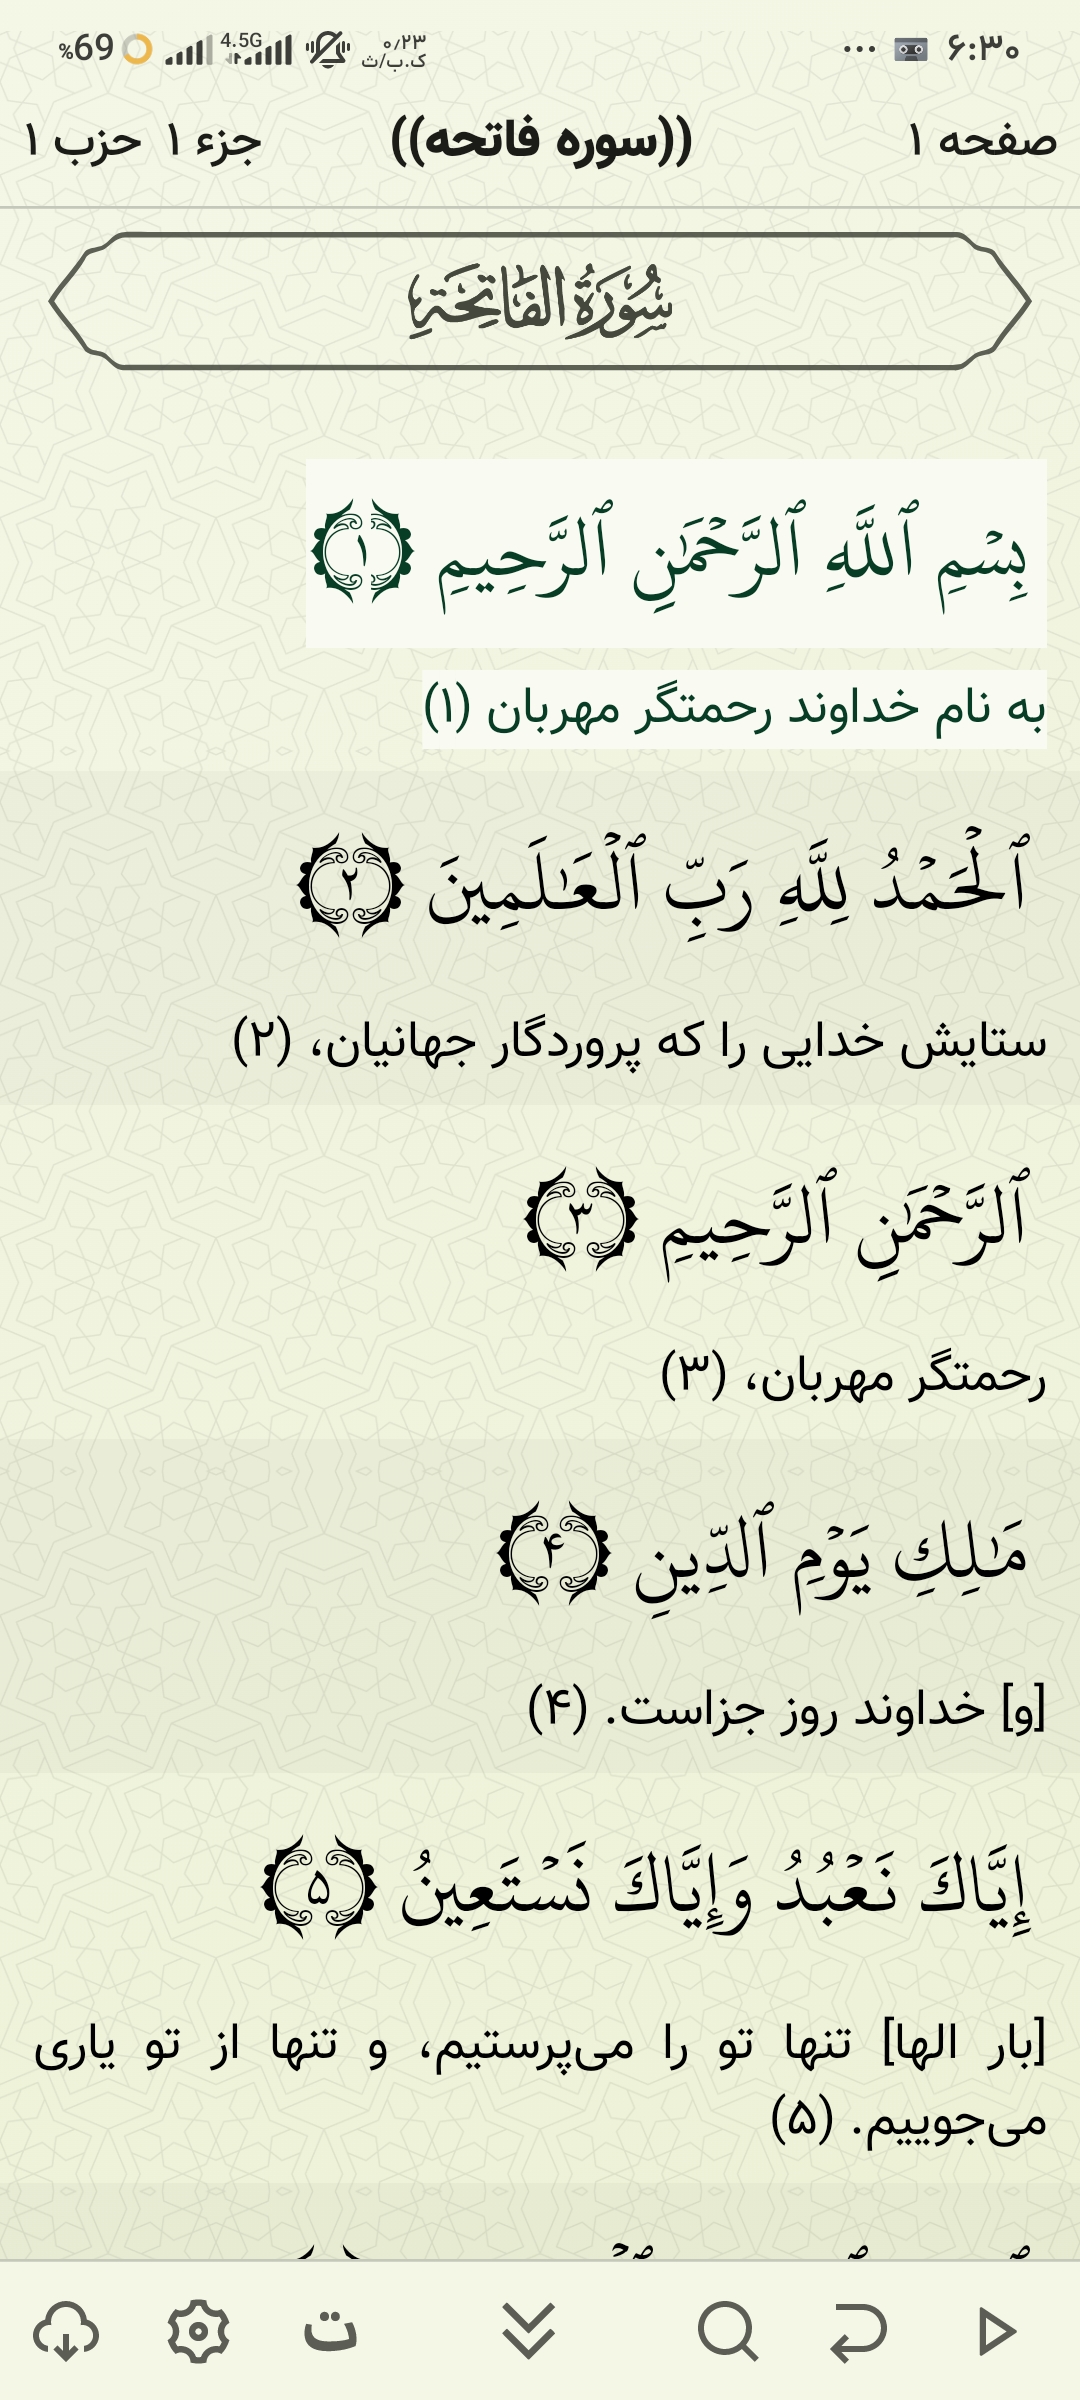 ۶:۳۰ ... ۰/۲۳ ک.ب/ث 4.5G %69
صفحه ۱ ((سوره فاتحه)) جزء ۱ حزب ۱
سُورَةُ الفَاتِحَةِ
بِسْمِ ٱللَّهِ ٱلرَّحْمَٰنِ ٱلرَّحِيمِ ۱
به نام خداوند رحمتگر مهربان (۱)
ٱلْحَمْدُ لِلَّهِ رَبِّ ٱلْعَٰلَمِينَ ۲
ستایش خدایی را که پروردگار جهانیان، (۲)
ٱلرَّحْمَٰنِ ٱلرَّحِيمِ ۳
رحمتگر مهربان، (۳)
مَٰلِكِ يَوْمِ ٱلدِّينِ ۴
[و] خداوند روز جزاست. (۴)
إِيَّاكَ نَعْبُدُ وَإِيَّاكَ نَسْتَعِينُ ۵
[بار الها] تنها تو را می‌پرستیم، و تنها از تو یاری
می‌جوییم. (۵)
ت